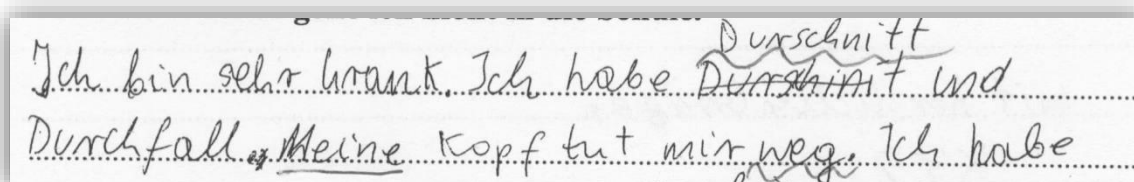 Durschnitt
Ich bin sehr krank. Ich habe Durschinit und
Durchfall. Meine Kopf tut mir weg. Ich habe